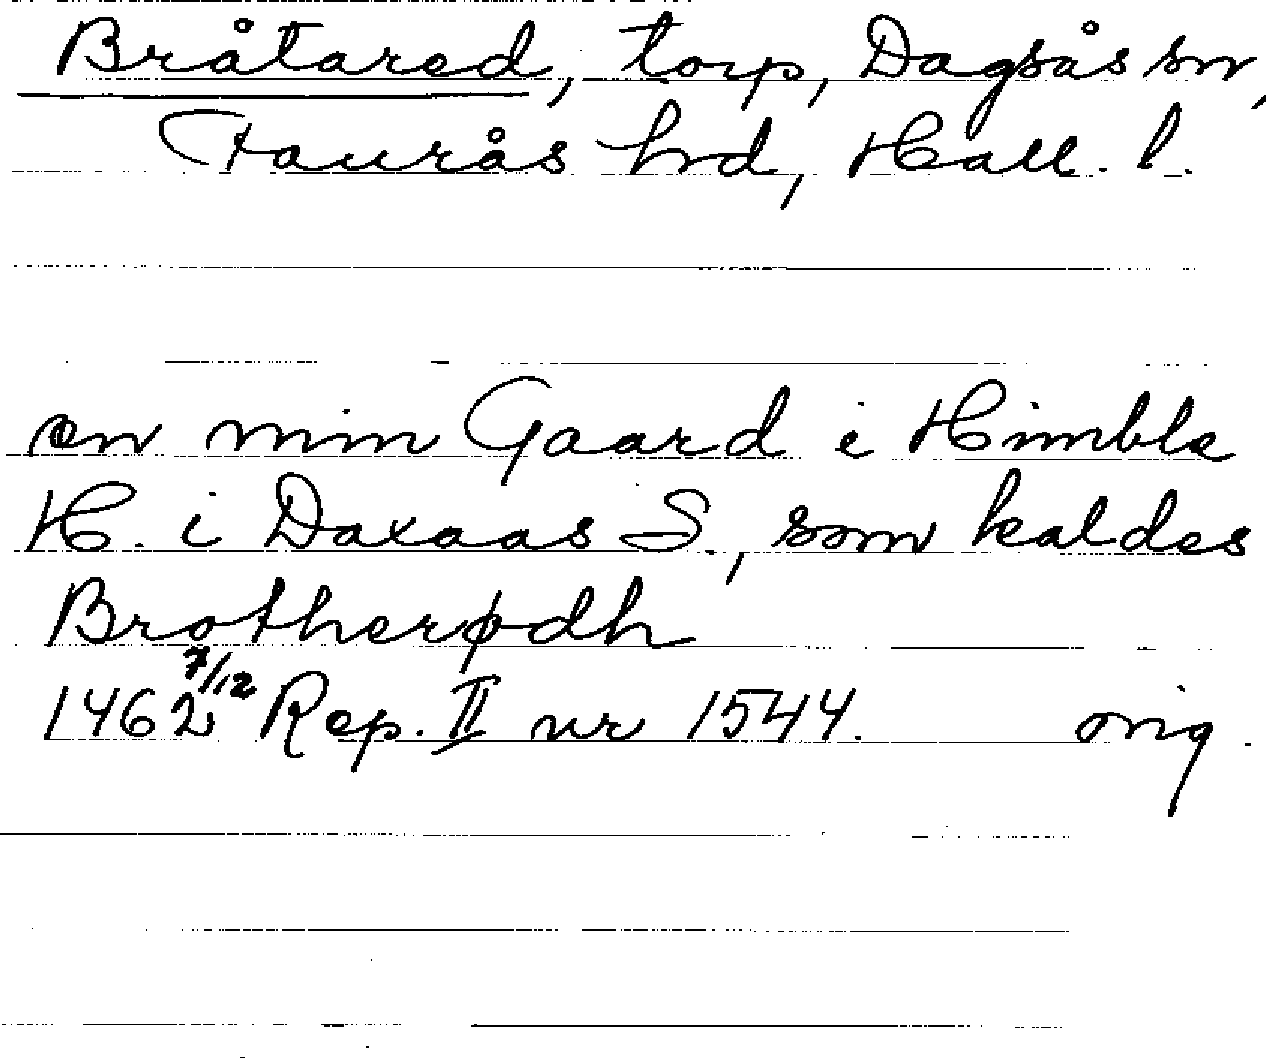 Bråtared, torp, Dagsås sn,
Faurås hrd, Hall. l.
en min Gaard i Himble
H. i Daxaas S., som kaldes
Brotherødh
1462 7/12 Rep. II nr 1544. orig.